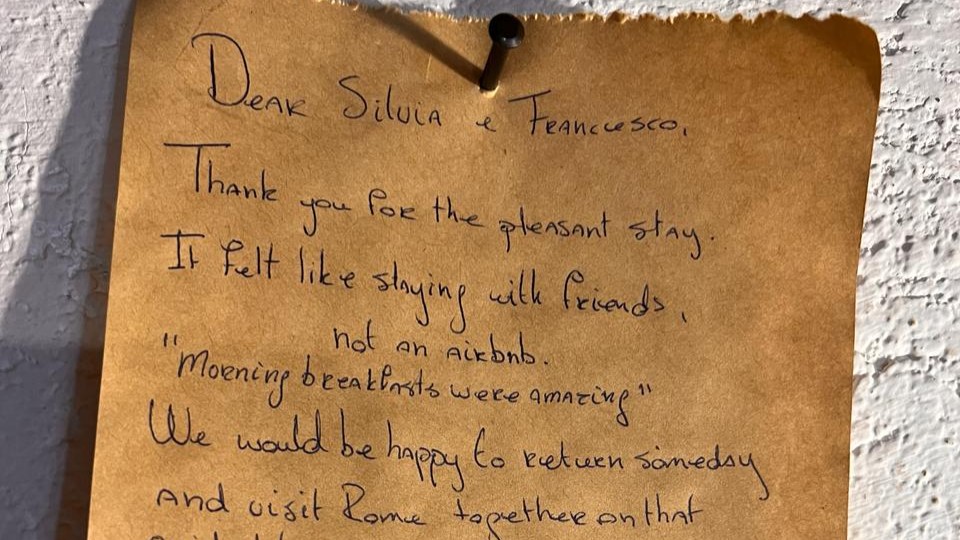 Dear Silvia e Francesco,
Thank you for the pleasant stay.
It felt like staying with friends,
not an airbnb.
"Morning breakfasts were amazing"
We would be happy to return someday
and visit Rome together on that